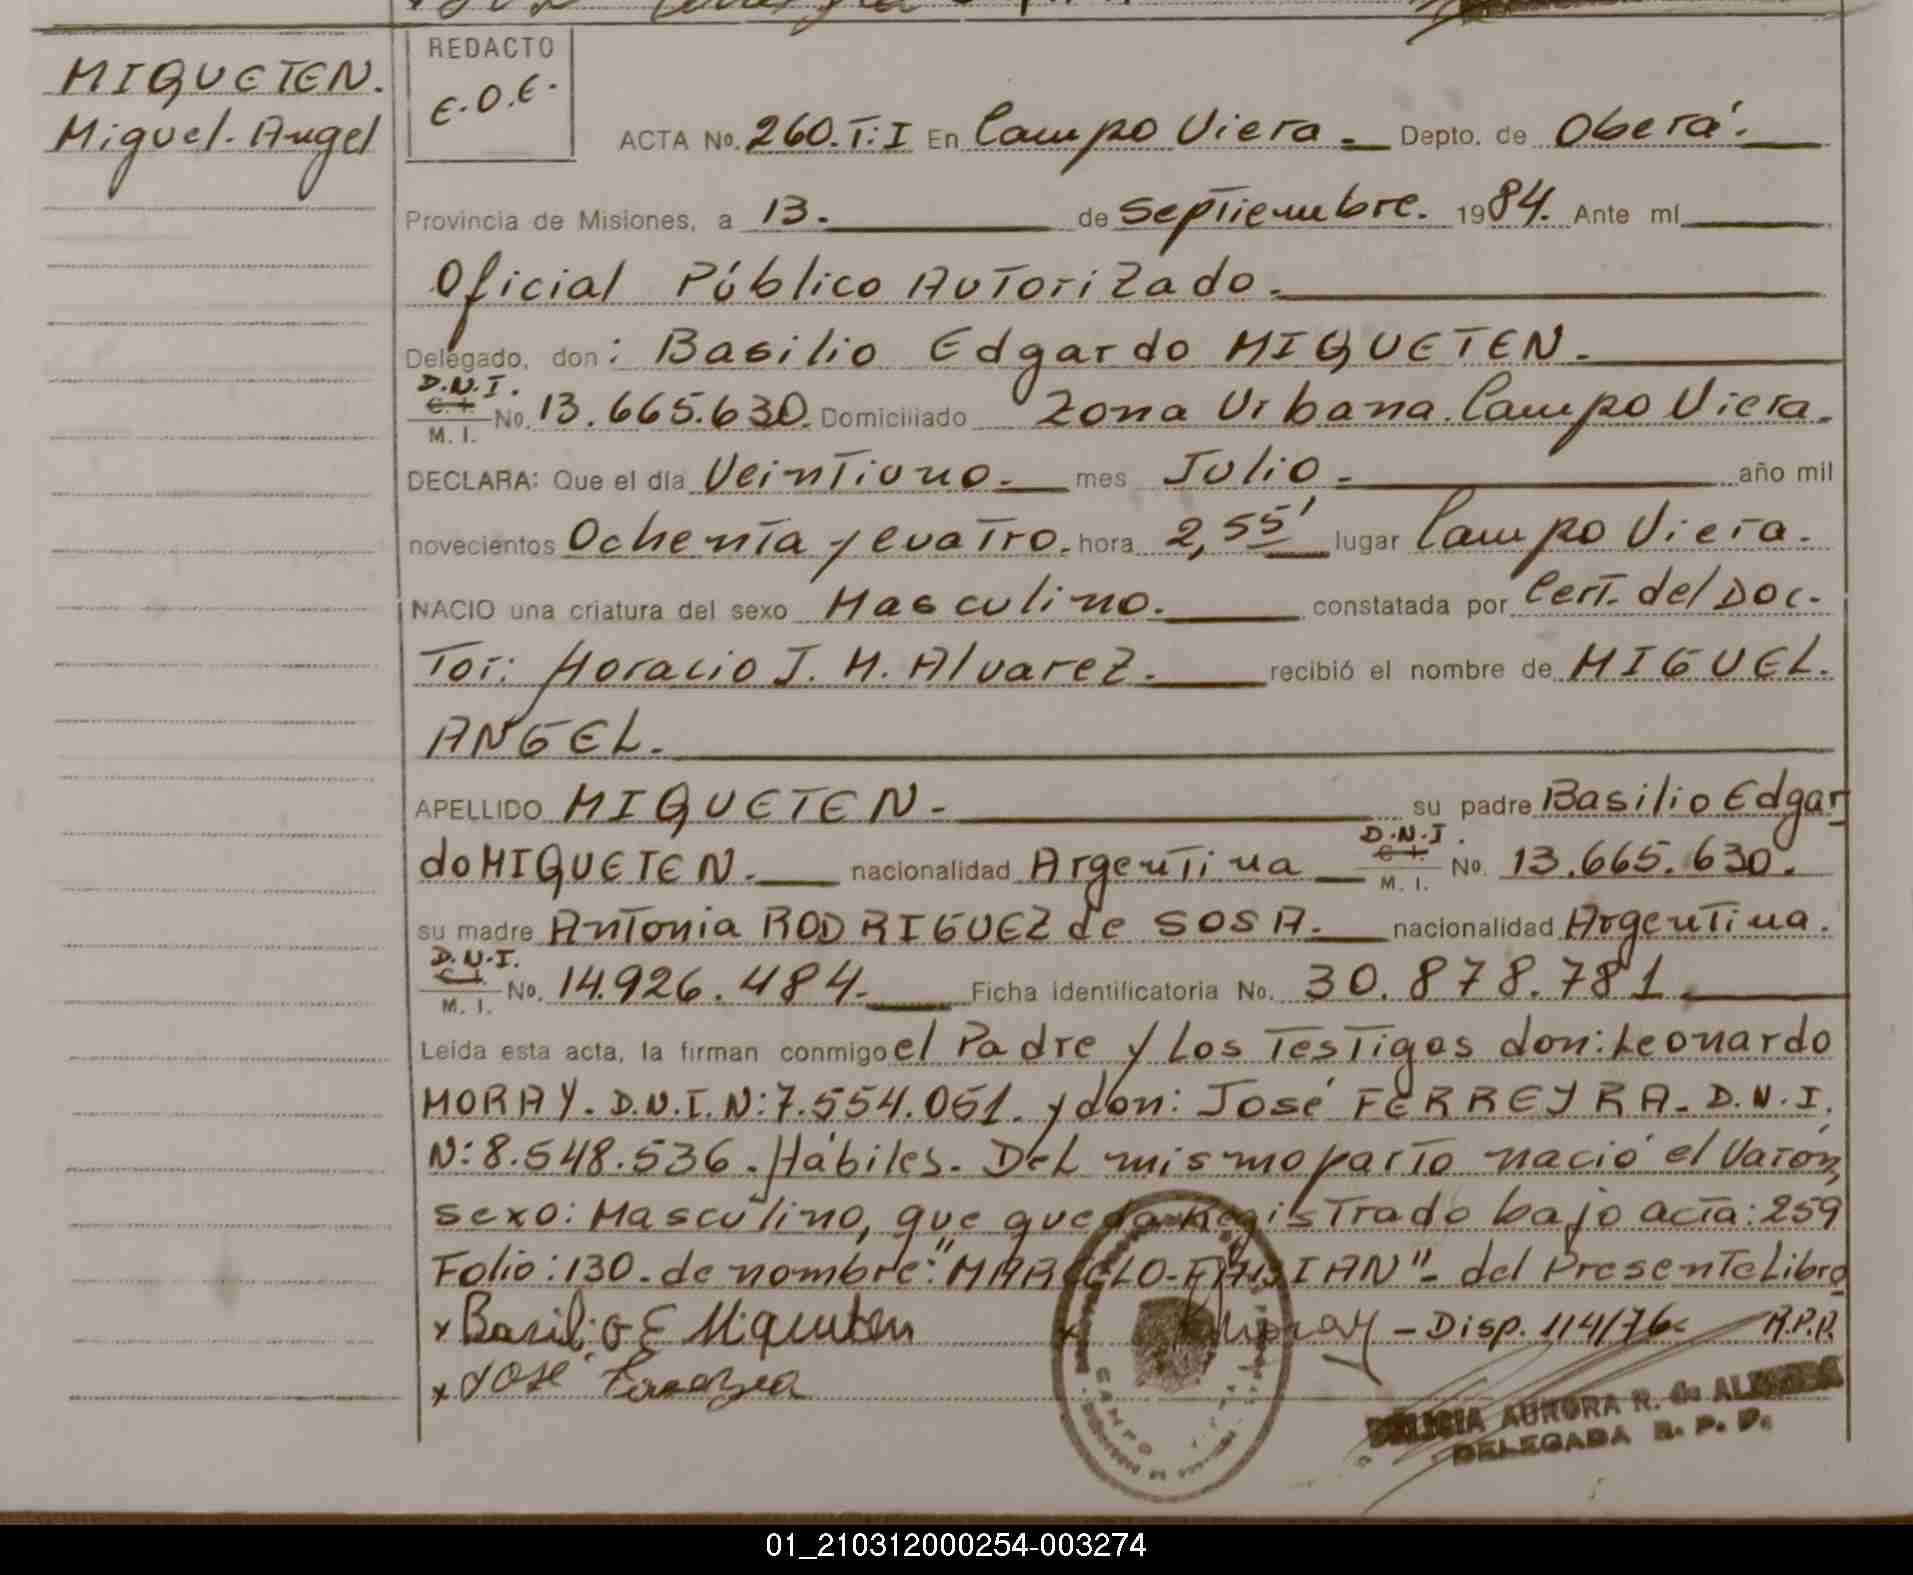 MIQUETEN.
Miguel. Angel
REDACTO
E.O.E.
ACTA No. 260. T: I En Campo Viera. Depto. de Oberá.
Provincia de Misiones, a 13. de Septiembre. 1984. Ante mí
Oficial Público Autorizado.
Delegado, don: Basilio Edgardo MIQUETEN.
D.N.I.
C. I.
M. I. No. 13.665.630. Domiciliado Zona Urbana. Campo Viera.
DECLARA: Que el día Veintiuno. mes Julio. año mil
novecientos Ochenta y cuatro. hora 2,55' lugar Campo Viera.
NACIO una criatura del sexo Masculino. constatada por Cert. del Doc-
tor: Horacio J. M. Alvarez. recibió el nombre de MIGUEL.
ANGEL.
APELLIDO MIQUETEN. su padre Basilio Edgar
D.N.I.
do MIQUETEN. nacionalidad Argentina C. I. M. I. No. 13.665.630.
su madre Antonia RODRIGUEZ de SOSA. nacionalidad Argentina.
D.N.I.
C. I.
M. I. No. 14.926.484. Ficha identificatoria No. 30.878.781
Leída esta acta, la firman conmigo el Padre y Los Testigos don: Leonardo
MORAY. D.N.I. N: 7.554.051. y don: José FERREYRA. D.N.I.
N: 8.548.536. Hábiles. Del mismo parto nació el Varón,
sexo: Masculino, que queda Registrado bajo acta: 259
Folio: 130. de nombre: "MARCELO-FABIAN". del Presente Libro
x Basilio E Miqueten x Moray - Disp. 114/76. R.P.P.
x José Ferreyra
CAMPO
DELICIA AURORA R. de
DELEGADA R. P. P.
01_210312000254-003274